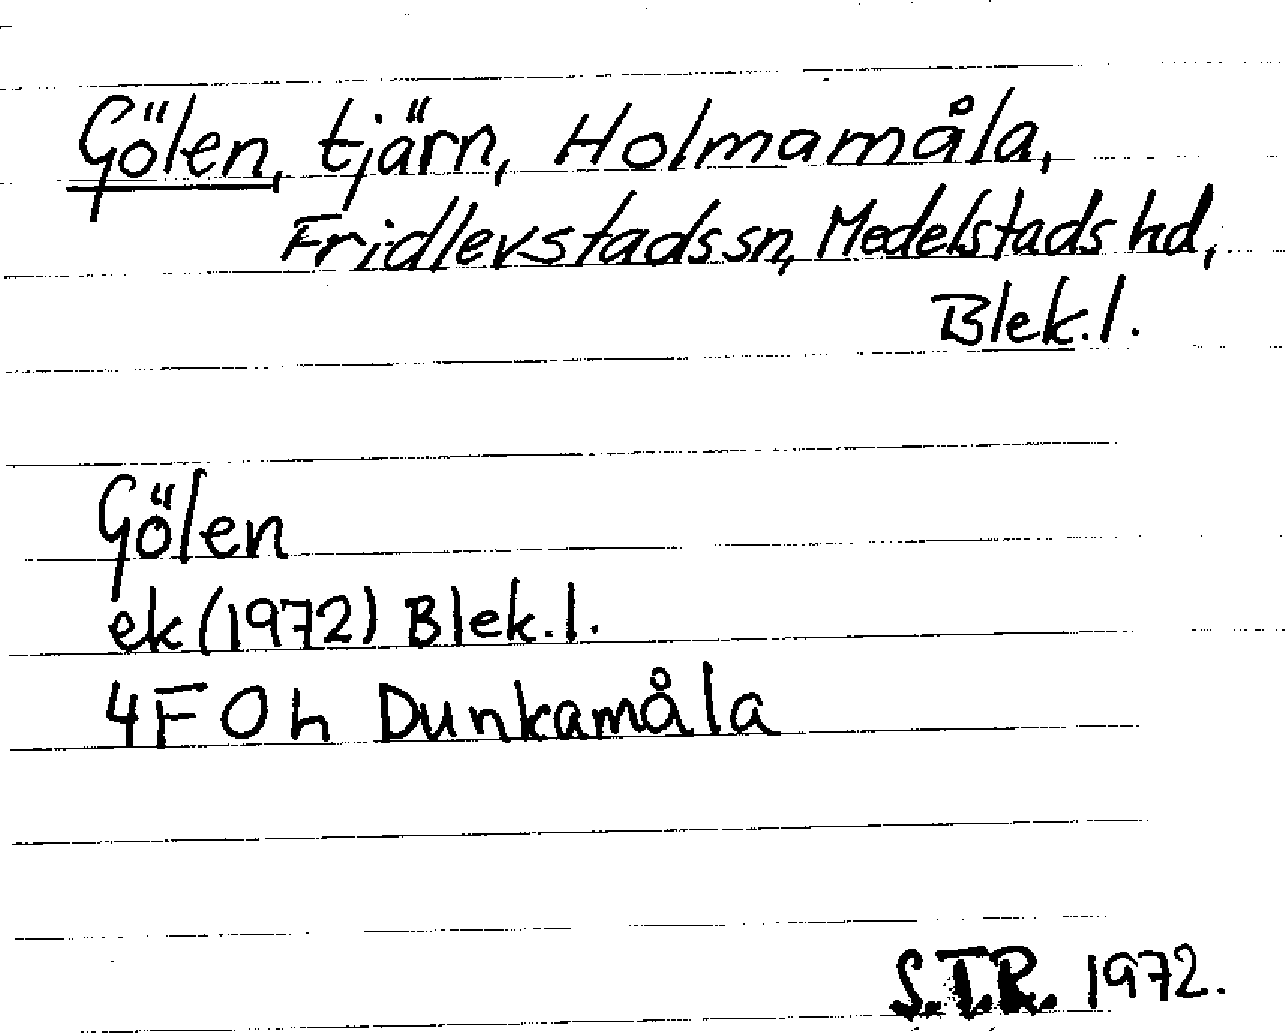 Gölen, tjärn, Holmamåla,
Fridlevstads sn, Medelstads hd,
Blek. l.
Gölen
ek (1972) Blek. l.
4F 0h Dunkamåla
S.T.R. 1972.